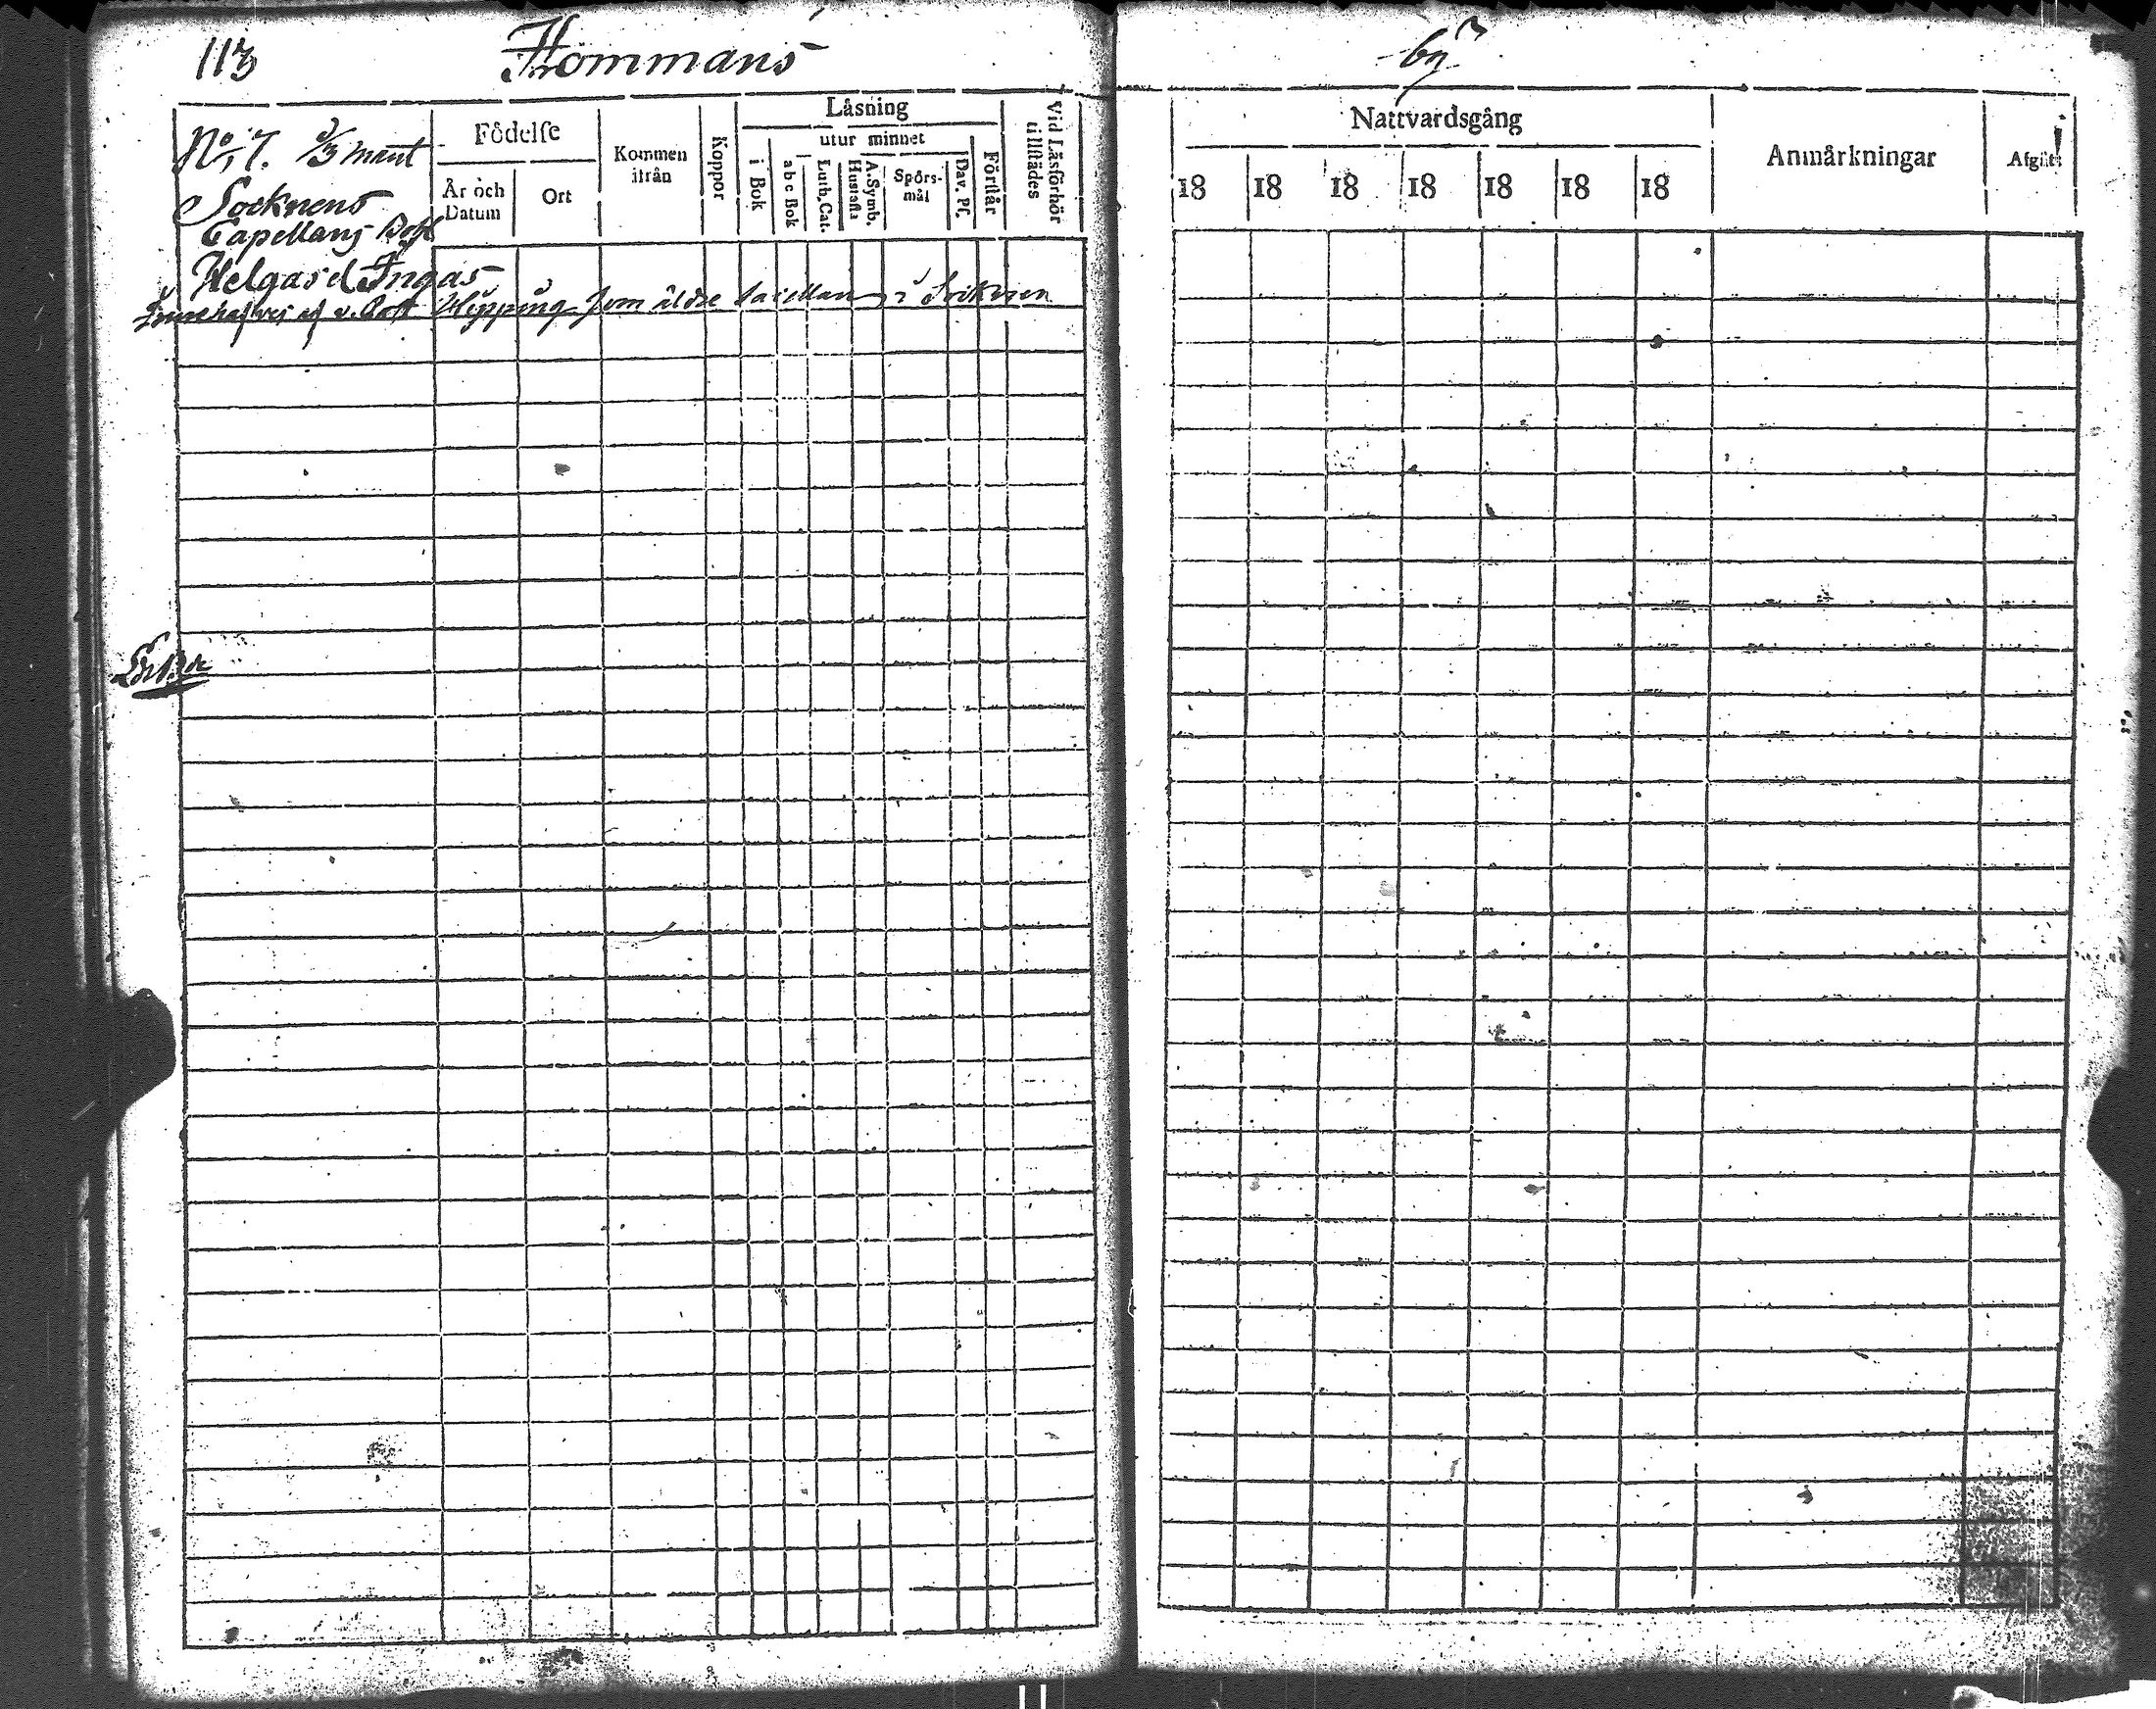 113 Hommanäs by
No 7. 2/3 mant
Socknens
Capellans Bohl
Helgard Ingas
Innehafves af v. Past Hipping som äldre Capellan i Soknen
Födelse
År och Datum
Ort
Kommen ifrån
Koppor
Läsning
utur minnet
i Bok
abc Bok
Luth. Cat.
A. Symb. Hustafla
Spörs-mål
Dav. Ps.
Förstår
Vid Läsförhör tillstädes
Nattvardsgång
18 18 18 18 18 18 18
Anmärkningar
Afgått